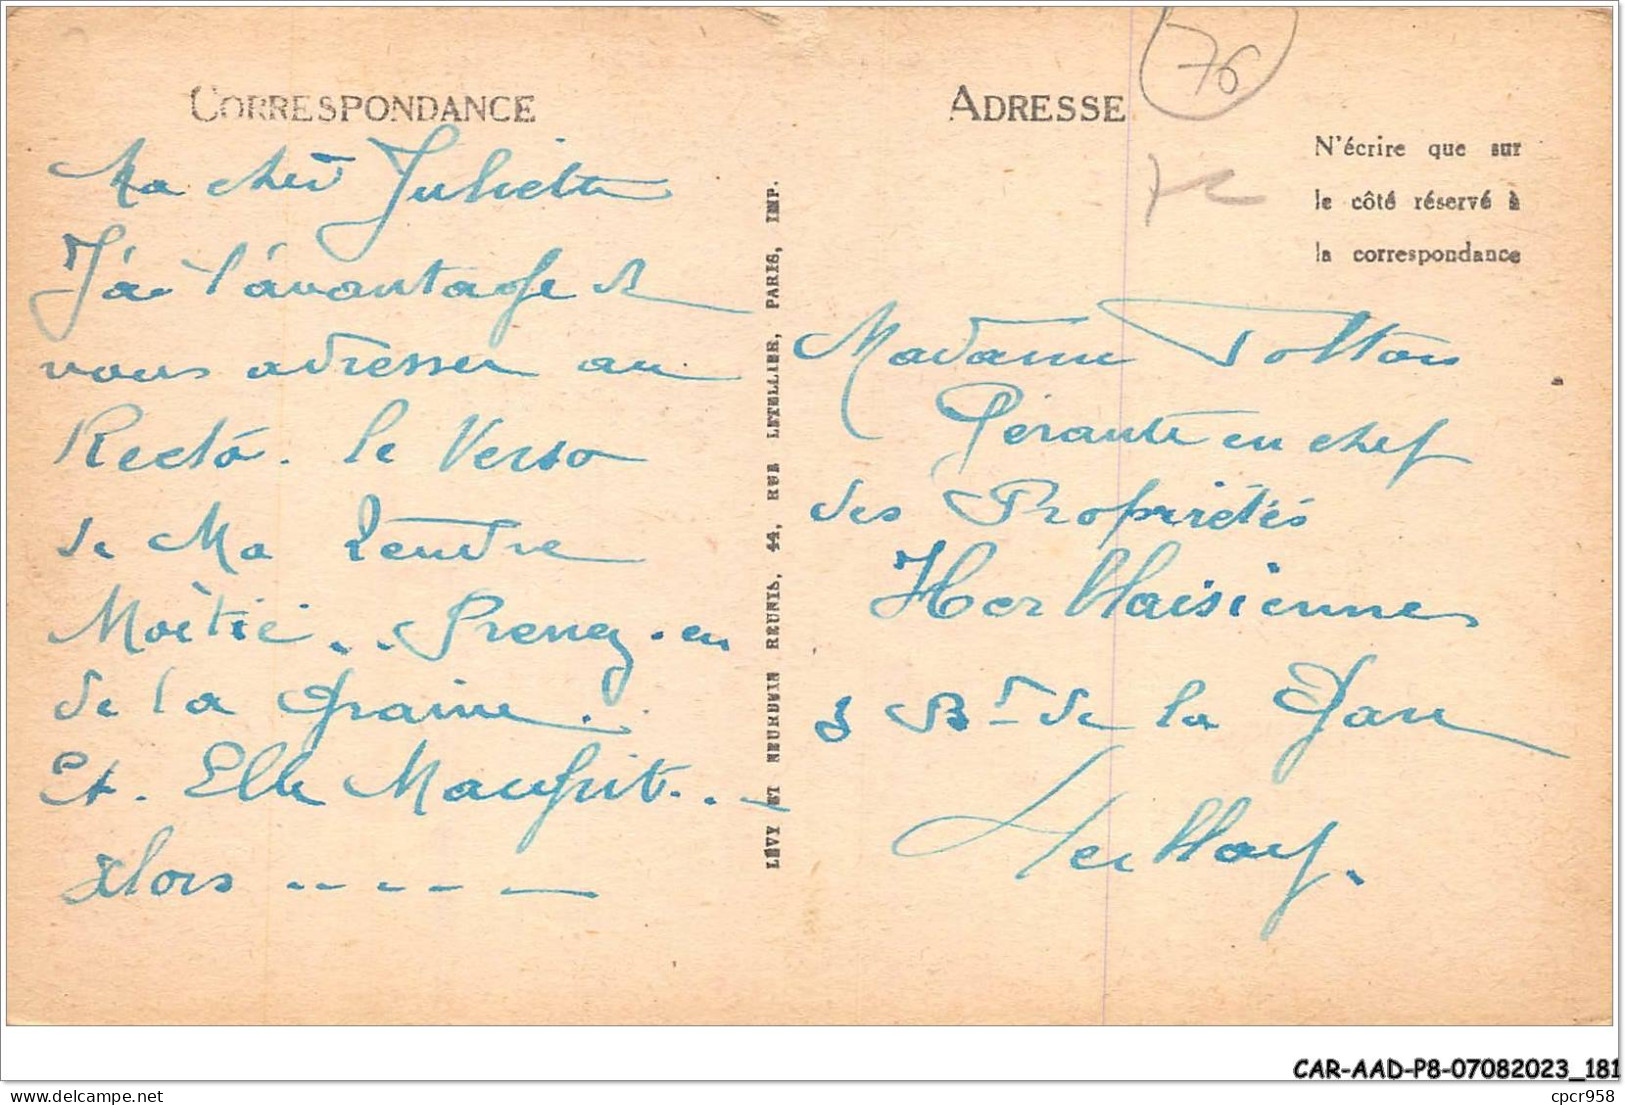 CORRESPONDANCE
Ma cher Juliette
J'ai l'avantage de
vous adresser au
Recto. le Verso
de Ma Tendre
Moitié.. Prenez-en
de la graine..
Et. Elle Maufrit...
Alors -----
LÉVY ET NEURDEIN RÉUNIS, 44, RUE LETELLIER, PARIS, IMP.
ADRESSE
76
N'écrire que sur
le côté réservé à
la correspondance
Madame
Gérante en chef
des Propriétés
Herblaisiennes
3 Bd de la Gare
Herblay.
CAR-AAD-P8-07082023_181
delcampe.net
cpcr958